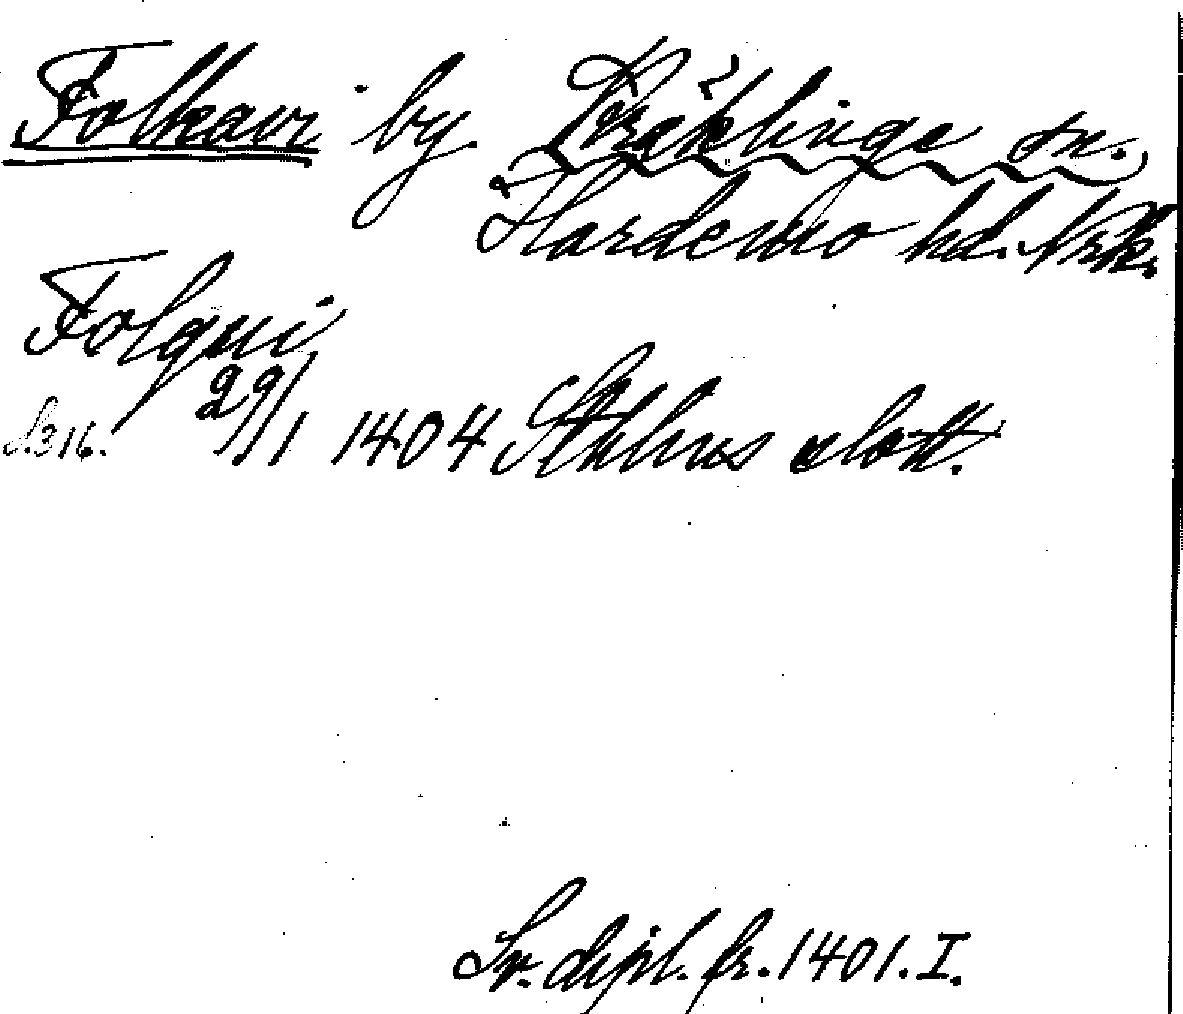 Folkavi by Kräklinge sn.
Hardemo hd. Nrk.
Folqui
S. 316. 29/1 1404 Sthlms slott.
Sv. dipl. fr. 1401. I.